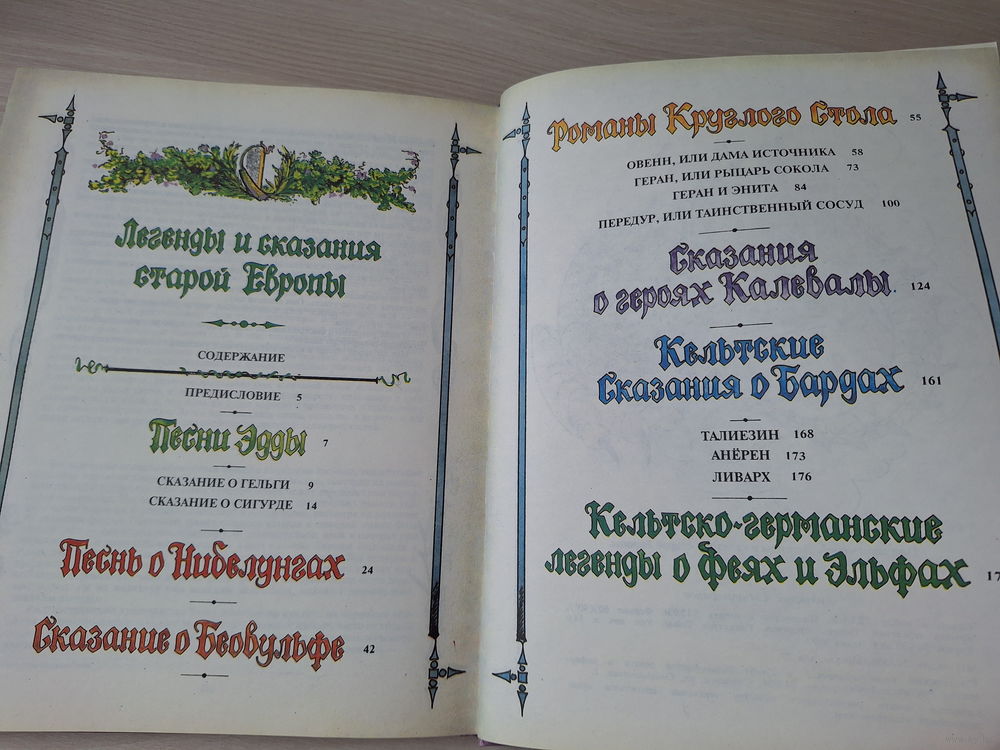 Легенды и сказания
старой Европы
СОДЕРЖАНИЕ
ПРЕДИСЛОВИЕ 5
Песни Эдды 7
СКАЗАНИЕ О ГЕЛЬГИ 9
СКАЗАНИЕ О СИГУРДЕ 14
Песнь о Нибелунгах 24
Сказание о Беовульфе 42
Романы Круглого Стола 55
ОВЕНН, ИЛИ ДАМА ИСТОЧНИКА 58
ГЕРАН, ИЛИ РЫЦАРЬ СОКОЛА 73
ГЕРАН И ЭНИТА 84
ПЕРЕДУР, ИЛИ ТАИНСТВЕННЫЙ СОСУД 100
Сказания
о героях Калевалы. 124
Кельтские
Сказания о Бардах 161
ТАЛИЕЗИН 168
АНЁРЕН 173
ЛИВАРХ 176
Кельтско-германские
легенды о феях и Эльфах 17